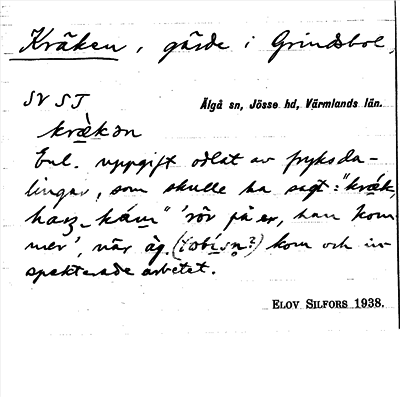 Kräken, gärde i Grindsbol,
SV ST Älgå sn, Jösse hd, Värmlands län.
kræ̀kən
Enl. uppgift odlat av fryksda-
lingar, som skulle ha sagt: "kræk,
"rör på er, han kom
mer', när äg. kom och in-
spekterade arbetet.
ELOV SILFORS 1938.